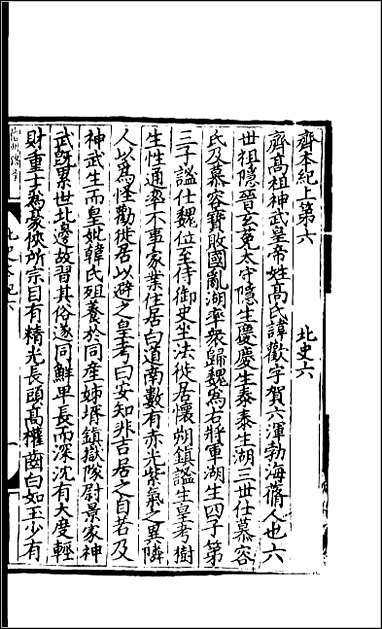 齊本紀上第六　　　北史六
齊高祖神武皇帝姓高氏諱歡字賀六渾勃海蓨人也六
世祖隱晉玄菟太守隱生慶慶生泰泰生湖三世仕慕容
氏及慕容寶敗國亂湖率衆歸魏爲右將軍湖生四子第
三子謐仕魏位至侍御史坐法徙居懷朔鎮謐生皇考樹
生性通率不事家業住居白道南數有赤光紫氣之異隣
人以爲怪勸徙居以避之皇考曰安知非吉居之自若及
神武生而皇妣韓氏殂養於同產姊壻鎮獄隊尉景家神
武旣累世北邊故習其俗遂同鮮卑長而深沈有大度輕
財重士爲豪俠所宗目有精光長頭高權齒白如玉少有
北史本紀六